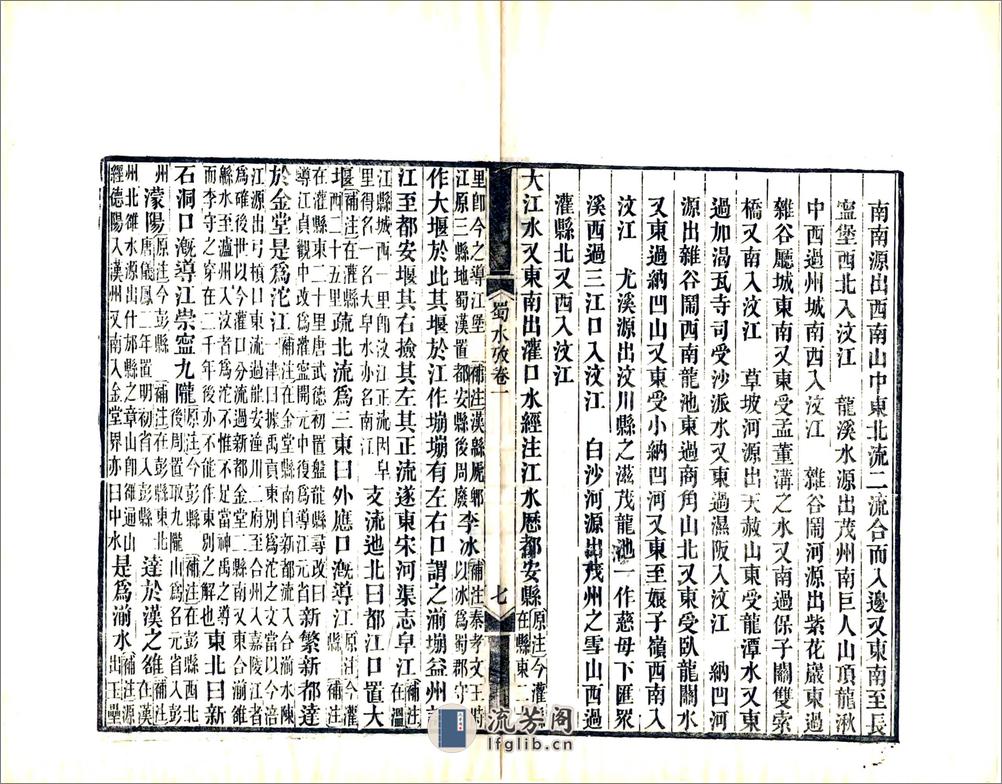 南南源出西南山中東北流二流合而入邊又東南至長
寧堡西北入汶江　龍溪水源出茂州南巨人山頂龍湫
中西過州城南西入汶江　雜谷鬧河源出紫花巖東過
雜谷廳城東南又東受孟董溝之水又南過保子關雙索
橋又南入汶江　草坡河源出天赦山東受龍潭水又東
過加渴瓦寺司受沙派水又東過濕阪入汶江　納凹河
源出雜谷鬧西南龍池東過商角山北又東受臥龍關水
又東過納凹山又東受小納凹河又東至娘子嶺西南入
汶江　尤溪源出汶川縣之滋茂龍池一作慈母下匯眾
溪西過三江口入汶江　白沙河源出茂州之雪山西過
灌縣北又西入汶江
大江水又東南出灌口水經注江水歷都安縣原注今灌縣在縣東二
蜀水攷卷一
七
里卽今之導江堡補注漢縣虒郫江原三縣地蜀漢置都安縣後周廢李冰補注秦孝文王時以冰爲蜀郡守
作大堰於此其堰於江作堋堋有左右口謂之湔堋益州
江至都安堰其右撿其左其正流遂東宋河渠志皁江在溫
江縣城西一里卽汶江正流因皁里得名一名大皁水亦名南江支流迆北曰都江口置大
堰補注在灌縣西二十五里疏北流爲三東曰外應口漑導江原注今灌縣補注
在灌縣東二十里唐武德初置盤龍縣尋改曰導江貞觀中改爲灌寧開元中復爲導江元省新繁新都達
於金堂是爲沱江補注在金堂縣南自新都流入合綿水陳
江源出弓槓口東流過安潼川二府至合州入嘉陵江者爲確後世以今灌口分流過新都金堂二縣南又東合湔雒
緜水至瀘州入汶者爲沱不惟不足當神禹之導而李守之穿在二千年後亦不能作東別之解也東北曰新
石洞口漑導江崇寧九隴原注今彭縣補注在彭縣西北後周置取九隴山爲名元省入彭
州濛陽原注今彭縣補注在彭縣東北唐儀鳳二年置明初省入彭縣達於漢之雒在漢
州北雒水源出什邡縣之章山卽雒通山經德陽入漢州又南入金堂界亦曰中水是爲湔水補注源出玉壘
流芳阁
lfglib.cn